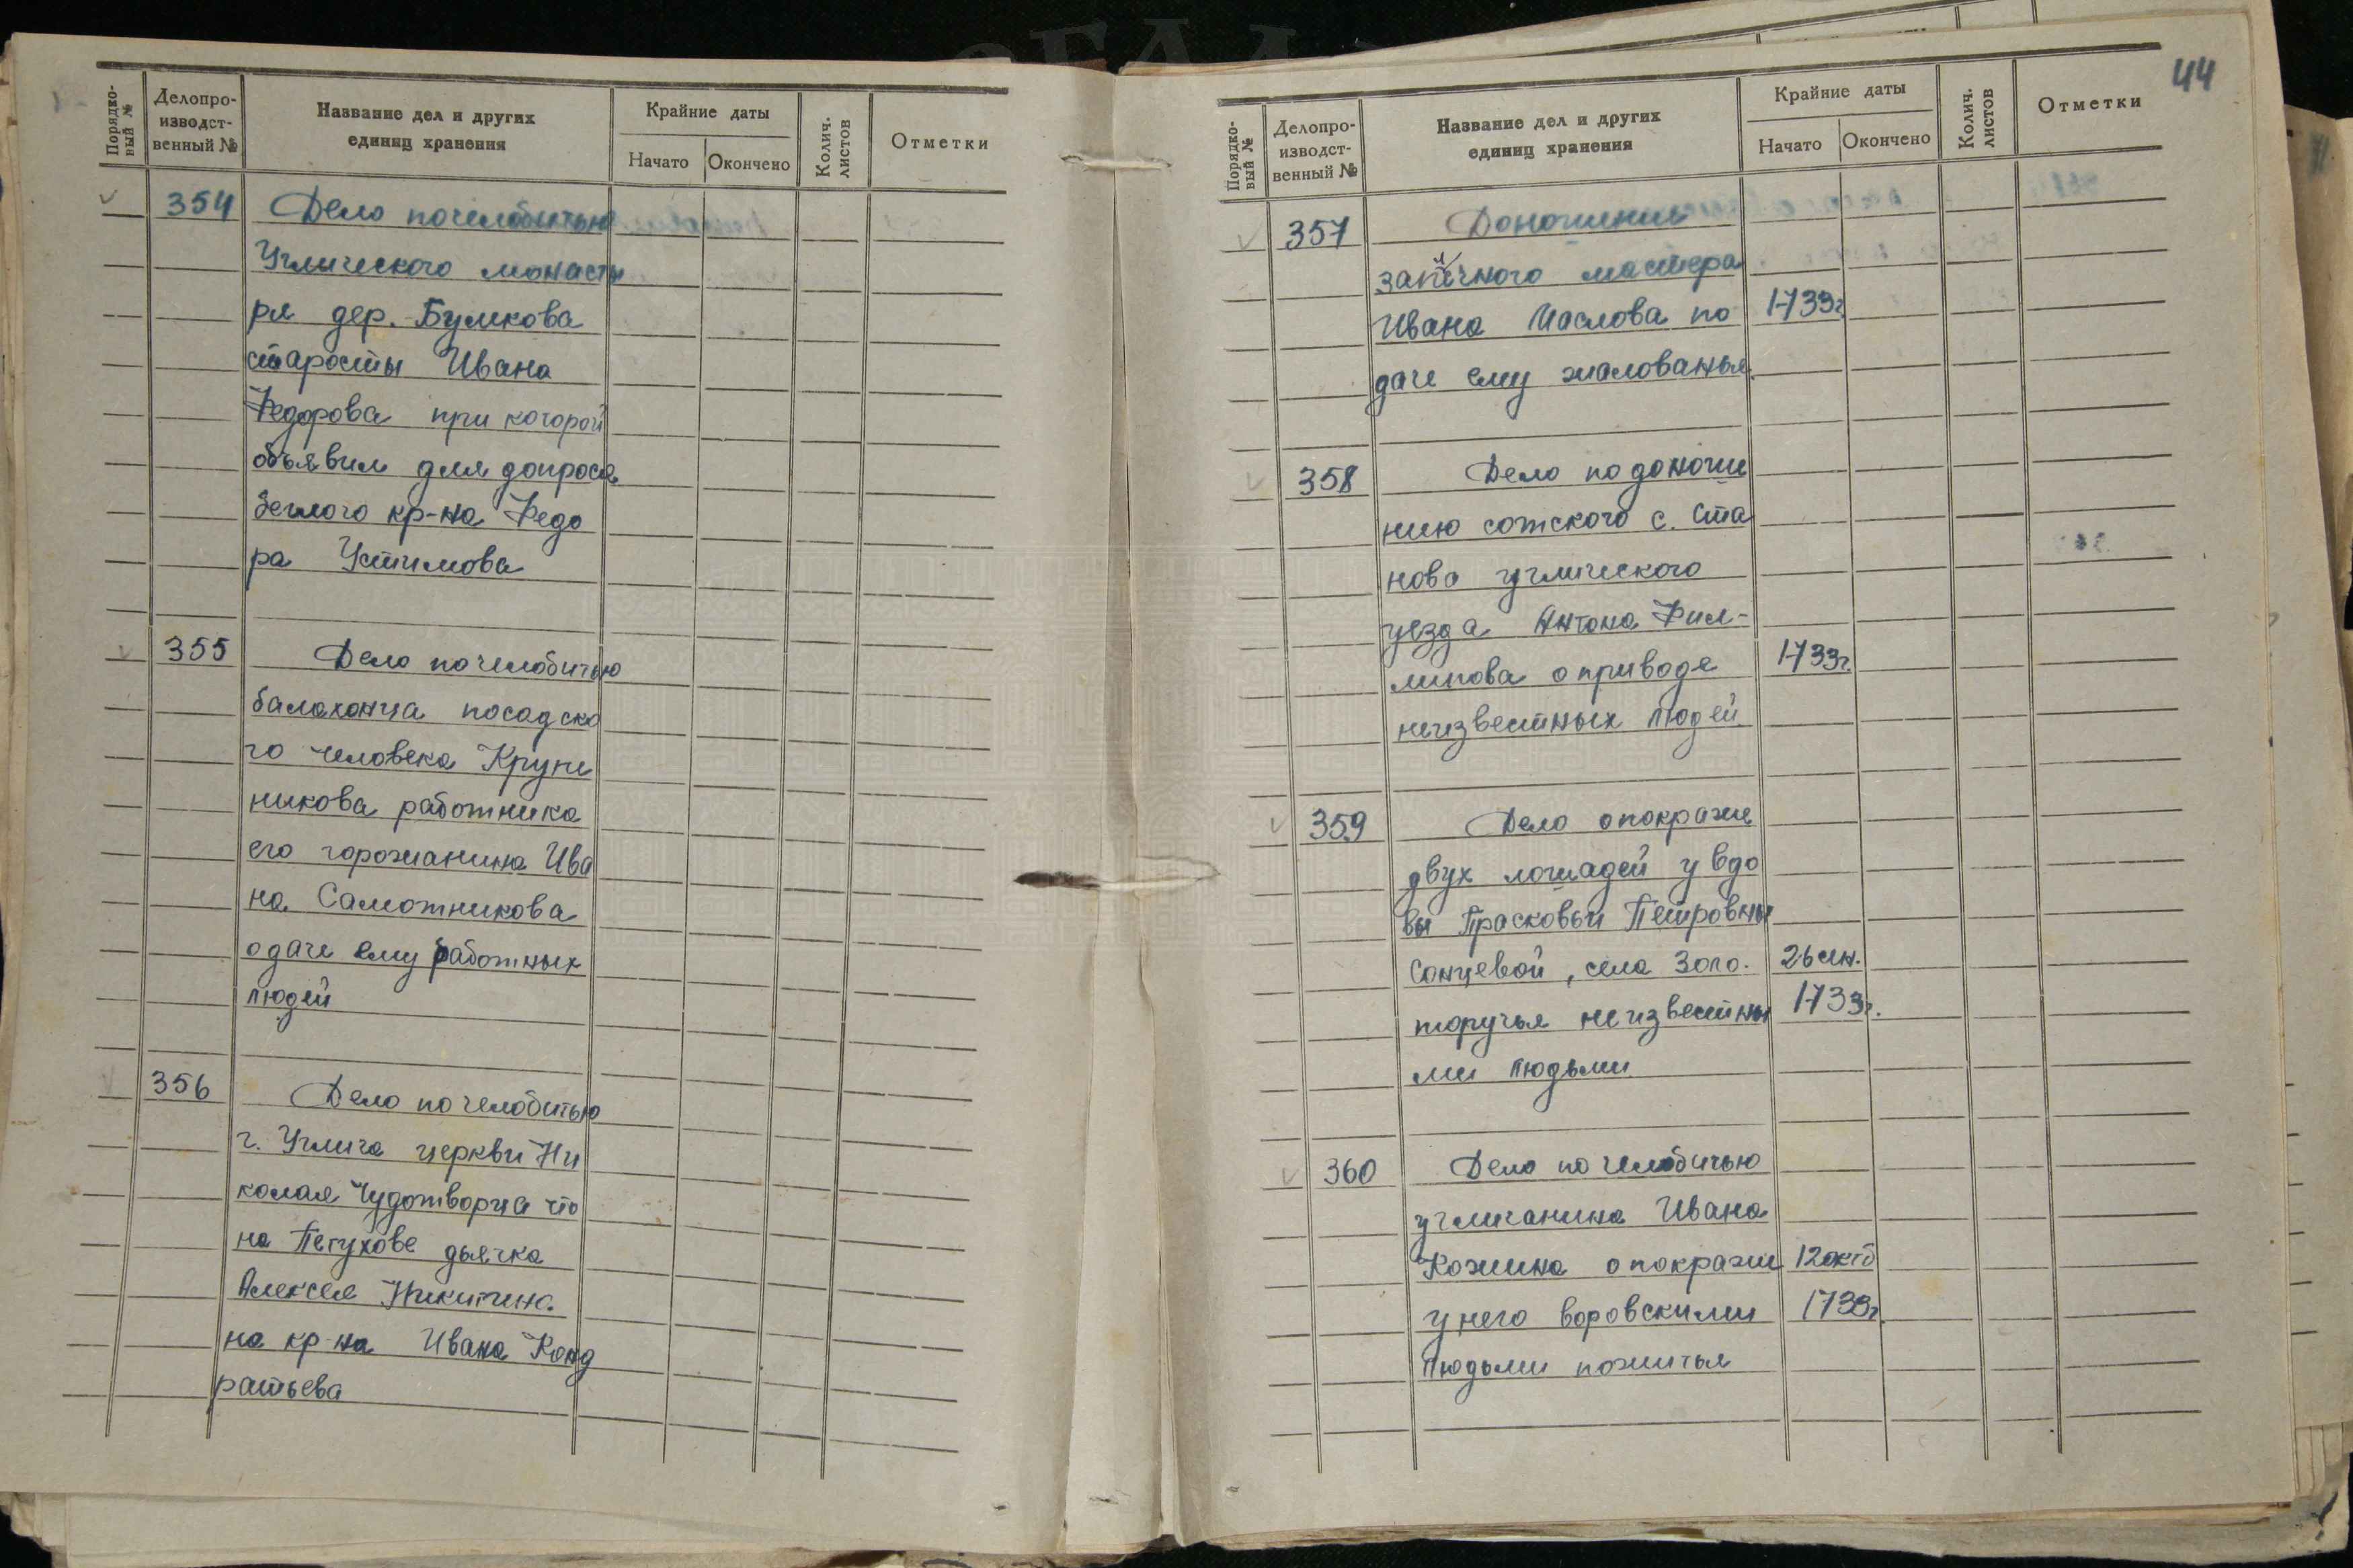 Порядко-
вый №
Делопро-
изводст-
венный №
Название дел и других
единиц хранения
Крайние даты
Начато
Окончено
Колич.
листов
Отметки
354 Дело по челобитью
Угличского монасты
ря дер. Бумкова
старосты Ивана
Федорова при которой
объявил для допроса
беглого кр-на Федо
ра Устимова
355 Дело по челобитью
балахонца посадско
го человека Крупе
никова работника
его горожанина Ива
на Самотникова
о даче ему работных
людей
356 Дело по челобитью
г. Углича церкви Ни
колая Чудотворца что
на Петухове дьячка
Алексея Никитина
на кр-на Ивана Конд
ратьева
44
Порядко-
вый №
Делопро-
изводст-
венный №
Название дел и других
единиц хранения
Крайние даты
Начато
Окончено
Колич.
листов
Отметки
357 Доношение
мастера
Ивана Маслова по 1733г.
даче ему жалованья
358 Дело по доноше
нию сотского с. Ста
ново угличского
уезда Антона Фил-
липова о приводе 1733г.
неизвестных людей
359 Дело о покраже
двух лошадей у вдо
вы Прасковьи Петровны
Сонцевой, села Золо. 26 сен.
торучья неизвестны 1733г.
ми людьми
360 Дело по челобитью
угличанина Ивана
Кожина о покраже 12 октб
у него воровскими 1733г.
людьми пожитья